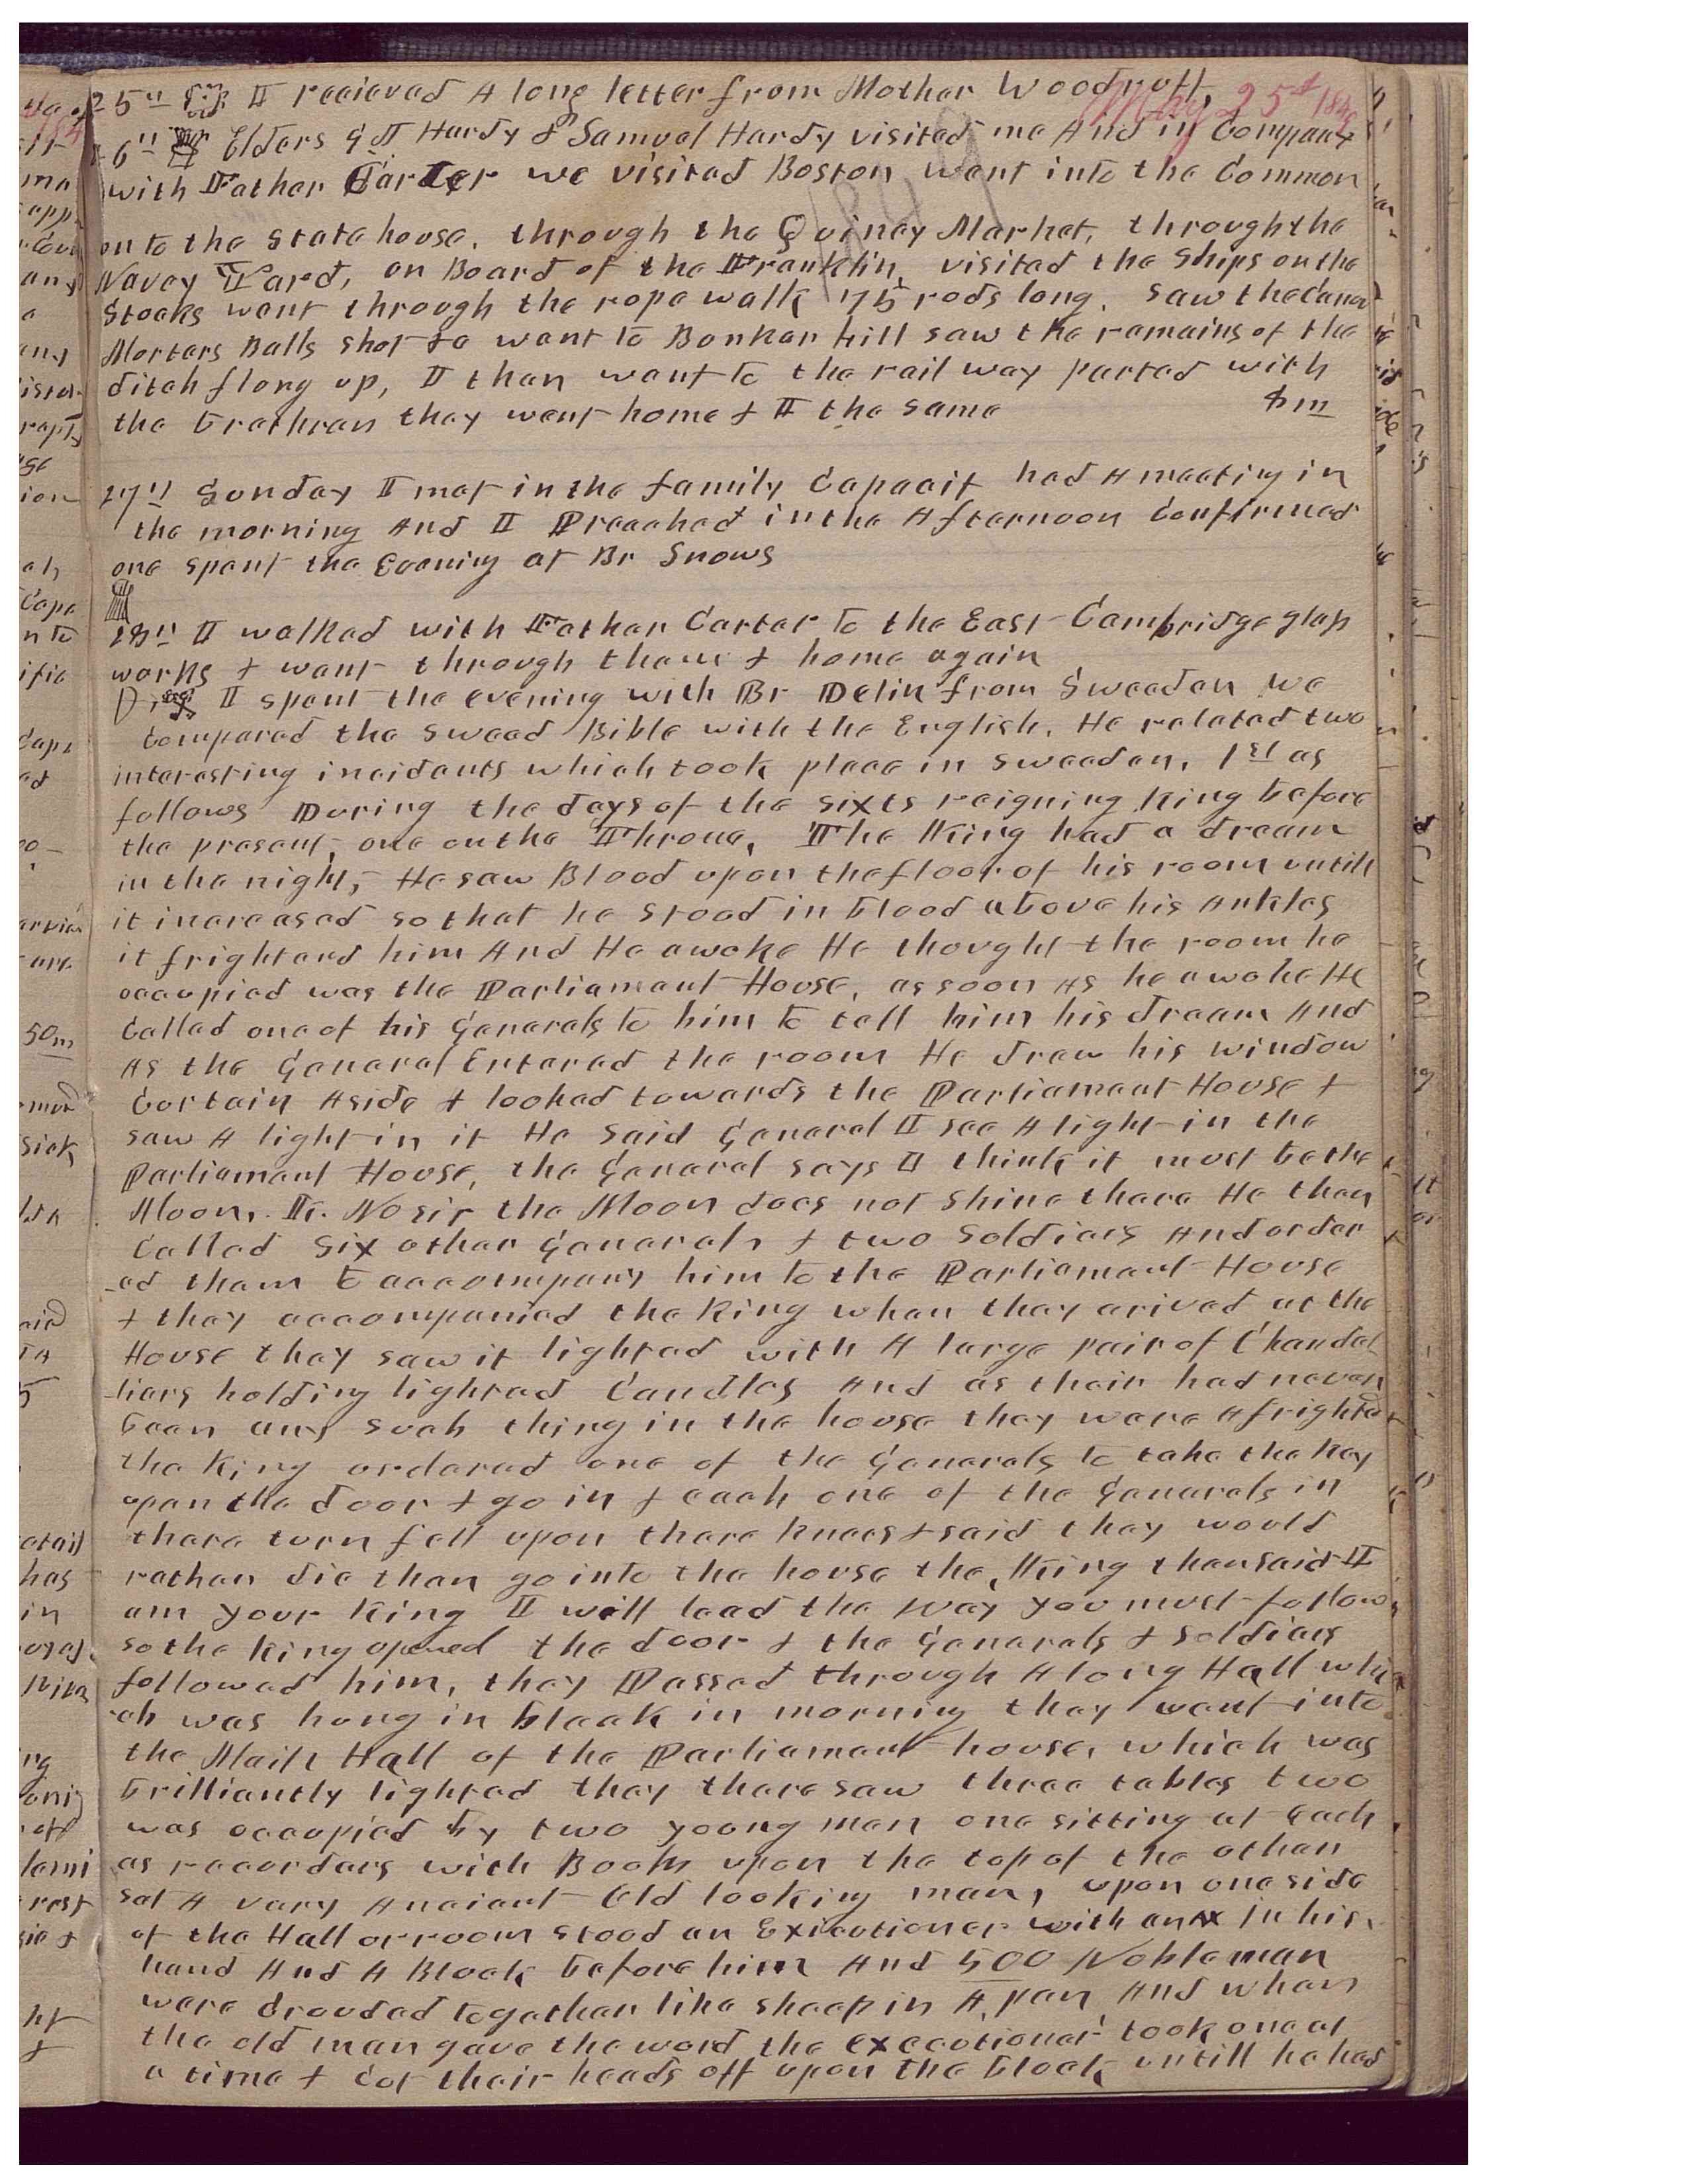 May 25th 1849
25th I recieved A long letter from Mother Woodruff,
26th Elders G T Hardy & Samuel Hardy visited me And in Company
with Father Carter we visited Boston went into the Common
on to the state house, through the Quincy Market, through the
Navey Yard, on Board of the Franklin, visited the Ships on the
Stocks went through the rope walk 75 rods long. Saw the Canon
Mortars Balls shot &c went to Bonker hill saw the remains of the
ditch flong up, I then went to the rail way parted with
the brethren they went home & I the same 8 m
27th Sunday I met in the family Capacit had A meeting in
the morning And I Preached in the Afternoon Confirmed
one spent the Evening at Br Snows
28th I walked with Father Carter to the East Cambridge glass
works & went through them & home again
I spent the evening with Br Delin from Sweeden we
Compared the Sweed Bible with the English. He related two
interesting incidents which took place in Sweeden. 1st as
follows During the days of the sixts reigning king before
the present, one on the Throne, The King had a dream
in the night, He saw Blood upon the floor of his room untill
it increased so that he stood in blood above his Ankles
it frightend him And He awoke He thought the room he
occupied was the Parliament House, as soon As he awoke He
Called one of his Generals to him to tell him his dream And
As the General Entered the room He drew his window
Cortain Aside & looked towards the Parliament House &
saw A light in it He said General I see A light in the
Parliament House, the General says I think it must be the
Moon, No sir the Moon does not shine there He then
Called six other Generals & two Soldiers And order
-ed them to accompany him to the Parliament House
& they accompanied the King when they arived at the
House they saw it lighted with A large pair of Chandal
-liers holding lighted Candles And as their had never
been any such thing in the house they were Afrighted
the King ordered one of the Generals to take the key
open the door & go in & each one of the Generals in
there turn fell upon there knees & said they would
rather die than go into the house the, King then said I
am your King I will lead the way you must follow
so the king opened the door & the Generals & Soldiers
followed him, they Passed through A long Hall whi
-ch was hong in black in morning they went into
the Main Hall of the Parliament house, which was
brilliantly lighted they there saw three tables two
was occupied by two yoong men one sitting at each
as recorders with Books upon the top of the other
sat A very Ancient Old looking man, upon one side
of the Hall or room stood an Executioner with an Ax In his
hand And A Block before him And 500 Nobleman
were Crouded together like sheep in A pen And when
the old man gave the word the executioner took one at
a time & Cot their heads off upon the block untill he had